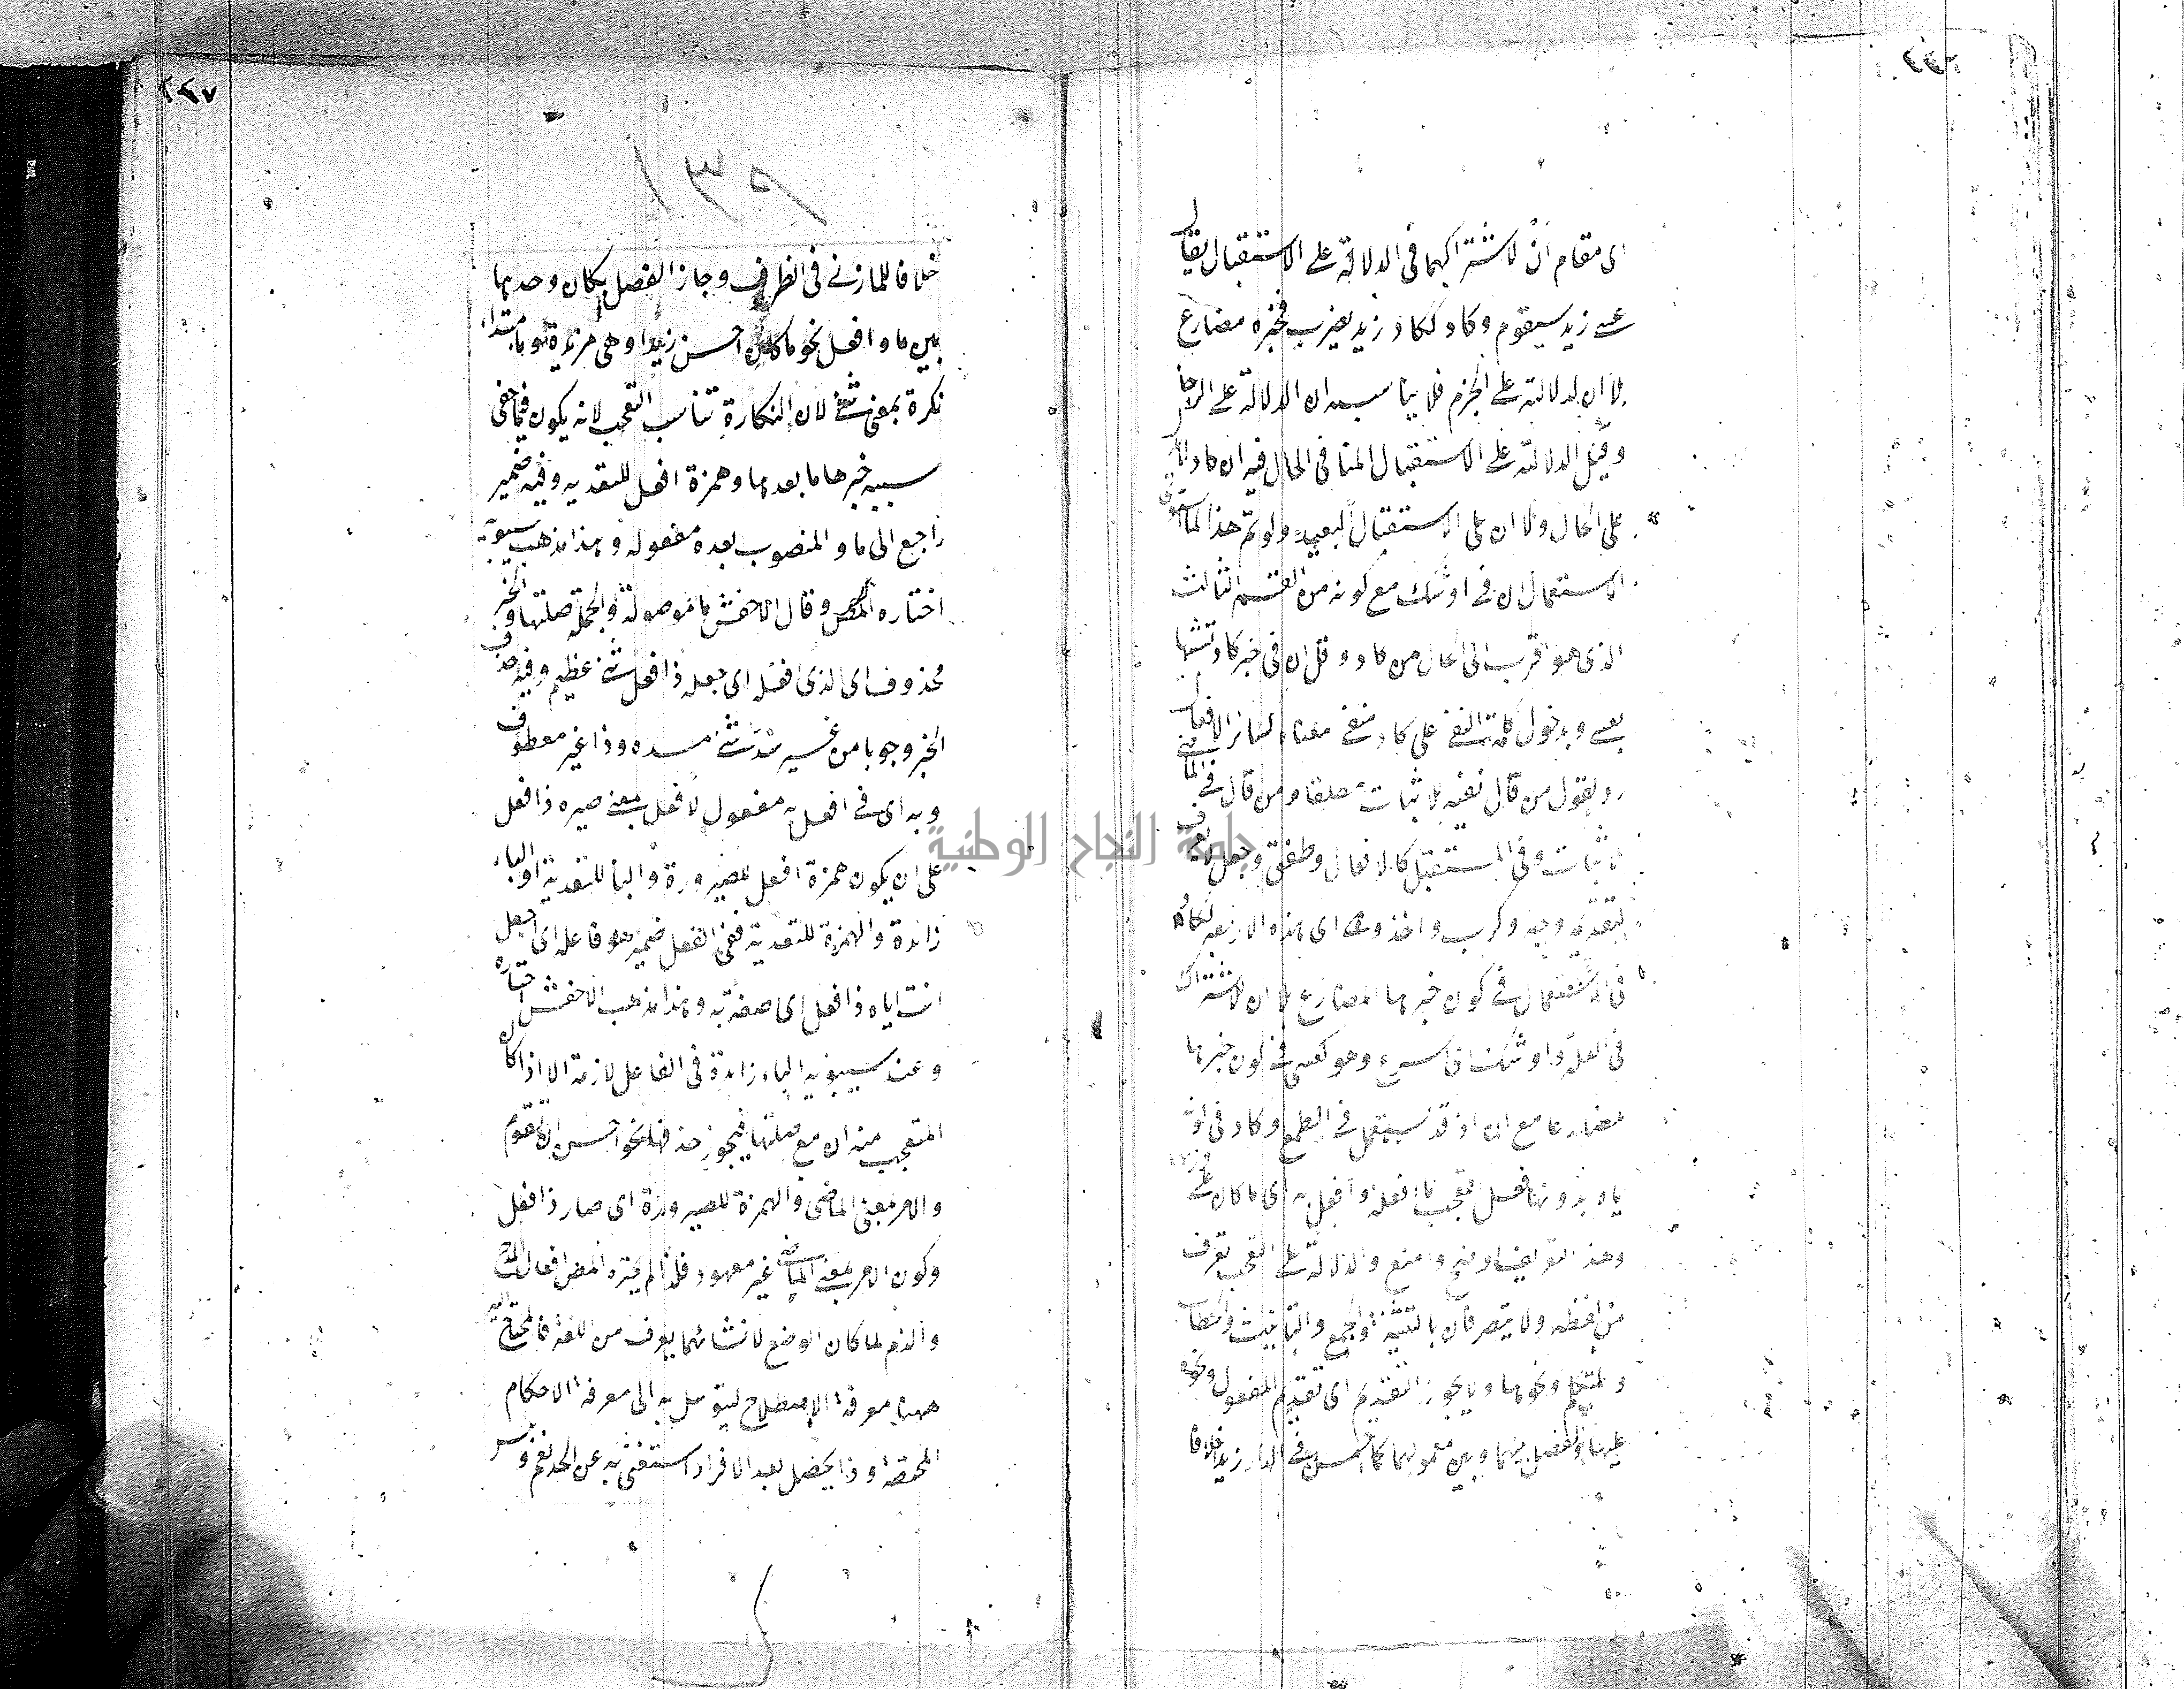 اى مقام ان لاشتراكهما فى الدلالة على الاستقبال يقال
عسى زيد سيقوم وكاد ككاد زيد يضرب فخبره مضارع
بلا ان لدلالته على الجزم فلا يناسبه ان الدلالة على الرجا
وقيل الدلالة على الاستقبال المنافى الحال فيه ان كاد لا
على الحال ولا ان على الاستقبال البعيد ولو تم هذا لما
الاستعمال ان فى اوشك مع كونه من القسم الثالث
الذى هو اقرب الى الحال من كاد وقل ان فى خبر كاد تشبها
بعسى وبدخول كلمة النفى على كاد ينفى معناه كسائر الافعال
ويقول من قال نفيه لاثبات مطلقا ومن قال فى الماضى
لاثبات وفى المستقبل كالافعال وطفق وجعل
وكرب واخذ وهى اى هذه الاربعة ككاد
فى الاستعمال فى كون خبرها المضارع بلا ان لاشتراك
فى العلة واوشك اى اسرع وهو كعسى فى كون خبرها
مضارعا مع ان اذ قد يستعمل فى الطمع وكاد فى انه
يا وبدونها فعل تعجب ما افعله وافعل به اى ما كان على
وهذا التعريف اوضح وامنع والدلالة على التعجب يعرف
من لفظه ولا يتصرفان بالتثنية والجمع والتأنيث والخطاب
والمتكلم ونحوها ولا يجوز التقديم اى تقديم المفعول ونحوه
عليهما والفصل بينهما وبين معمولهما كما احسن فى الدار زيدا خلافا
٢٤٧
خلافا للمازنى فى الظرف وجاز الفصل بكان وحدها
بين ما وافعل نحو ما كان احسن زيدا وهى مزيدة وما مبتداء
نكرة بمعنى شئ لان النكارة تناسب التعجب لانه يكون فيما خفى
سببه خبرها ما بعدها وهمزة افعل للتعدية وفيه ضمير
راجع الى ما والمنصوب بعده مفعوله وهذا مذهب سيبويه
اختاره المص وقال الاخفش ما موصولة والجملة صلتها والخبر
محذوف اى الذى افعله اى جعله ذا فعل شئ عظيم وفيه حذف
الخبر وجوبا من غير سد شئ مسده وذا غير معطوف
وبه اى فى افعل به مفعول لافعل بمعنى صيره ذا فعل
على ان يكون همزة افعل للصيرورة والباء للتعدية او الباء
زائدة والهمزة للتعدية ففى الفعل ضمير هو فاعله اى اجعل
انت اياه ذا فعل اى صفة به وهذا مذهب الاخفش اختاره
وعند سيبويه الباء زائدة فى الفاعل لازمة الا اذا كان
المتعجب منه ان مع صلتها فيجوز حذفها نحو احسن ان تقوم
والامر بمعنى الماضى والهمزة للصيرورة اى صار ذا فعل
وكون الامر بمعنى الماضى غير معهود فلذا لم يختره المص افعال المدح
والذم لما كان الوضع لانشائهما يعرف من اللغة فالمحتاج اليه
ههنا معرفة الاصطلاح ليتوصل به الى معرفة الاحكام
المختصة وذا يحصل بعد الافراد استغنى به عن الحد نعم وبئس
جامعة النجاح الوطنية